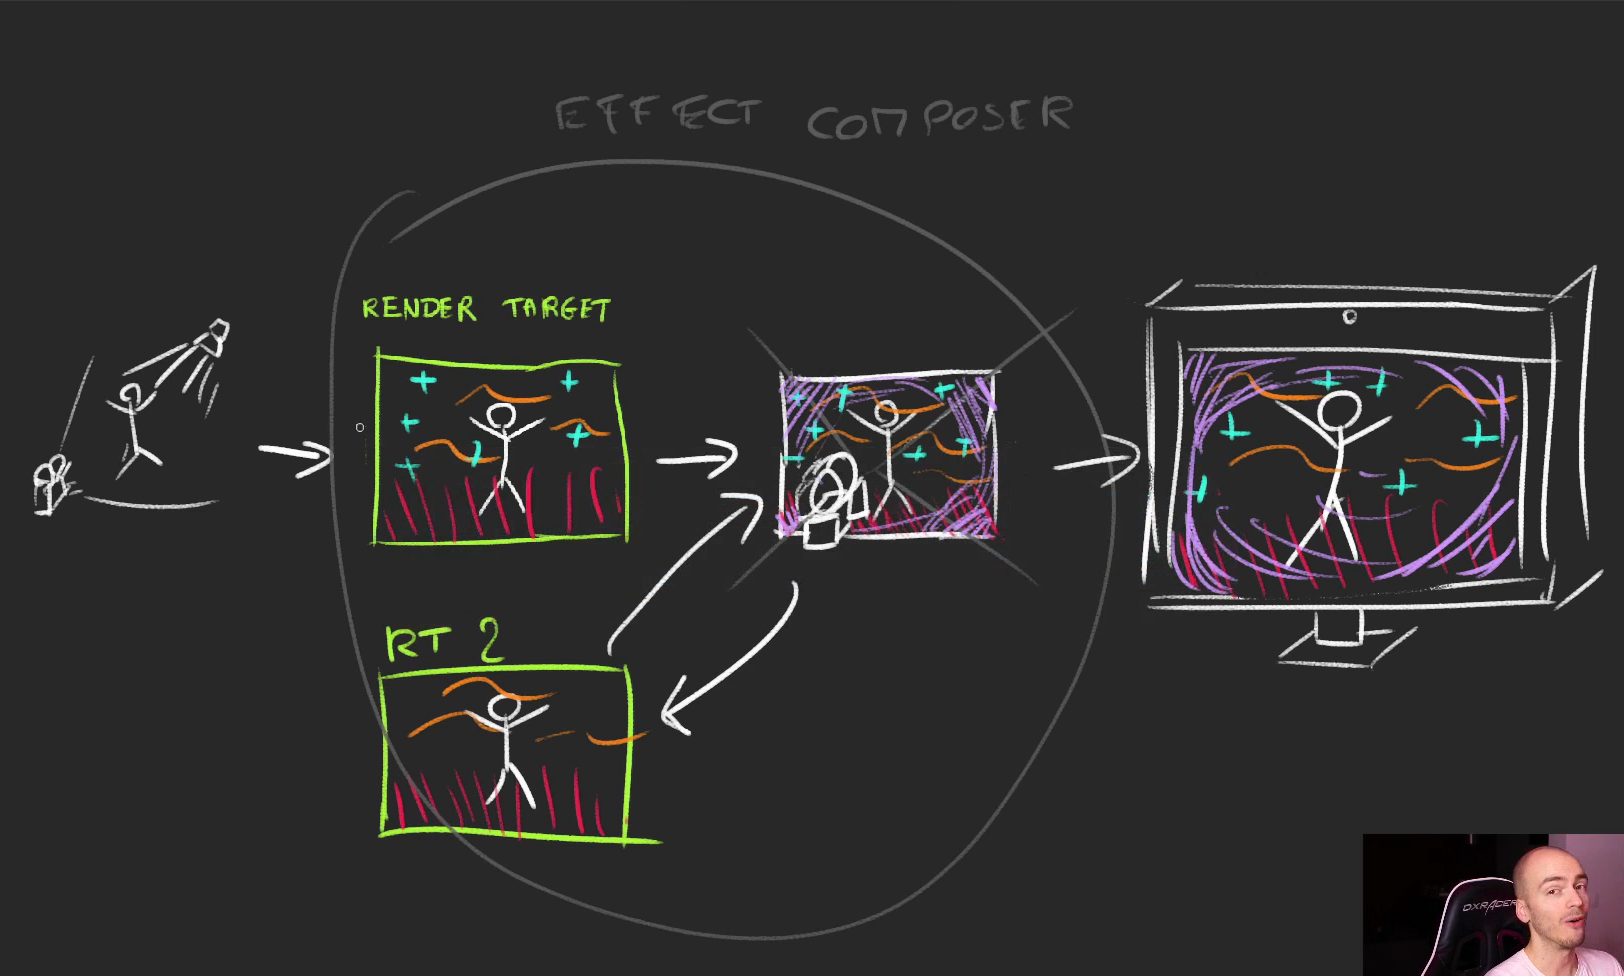 EFFECT COMPOSER
RENDER TARGET
RT 2
DXRACER